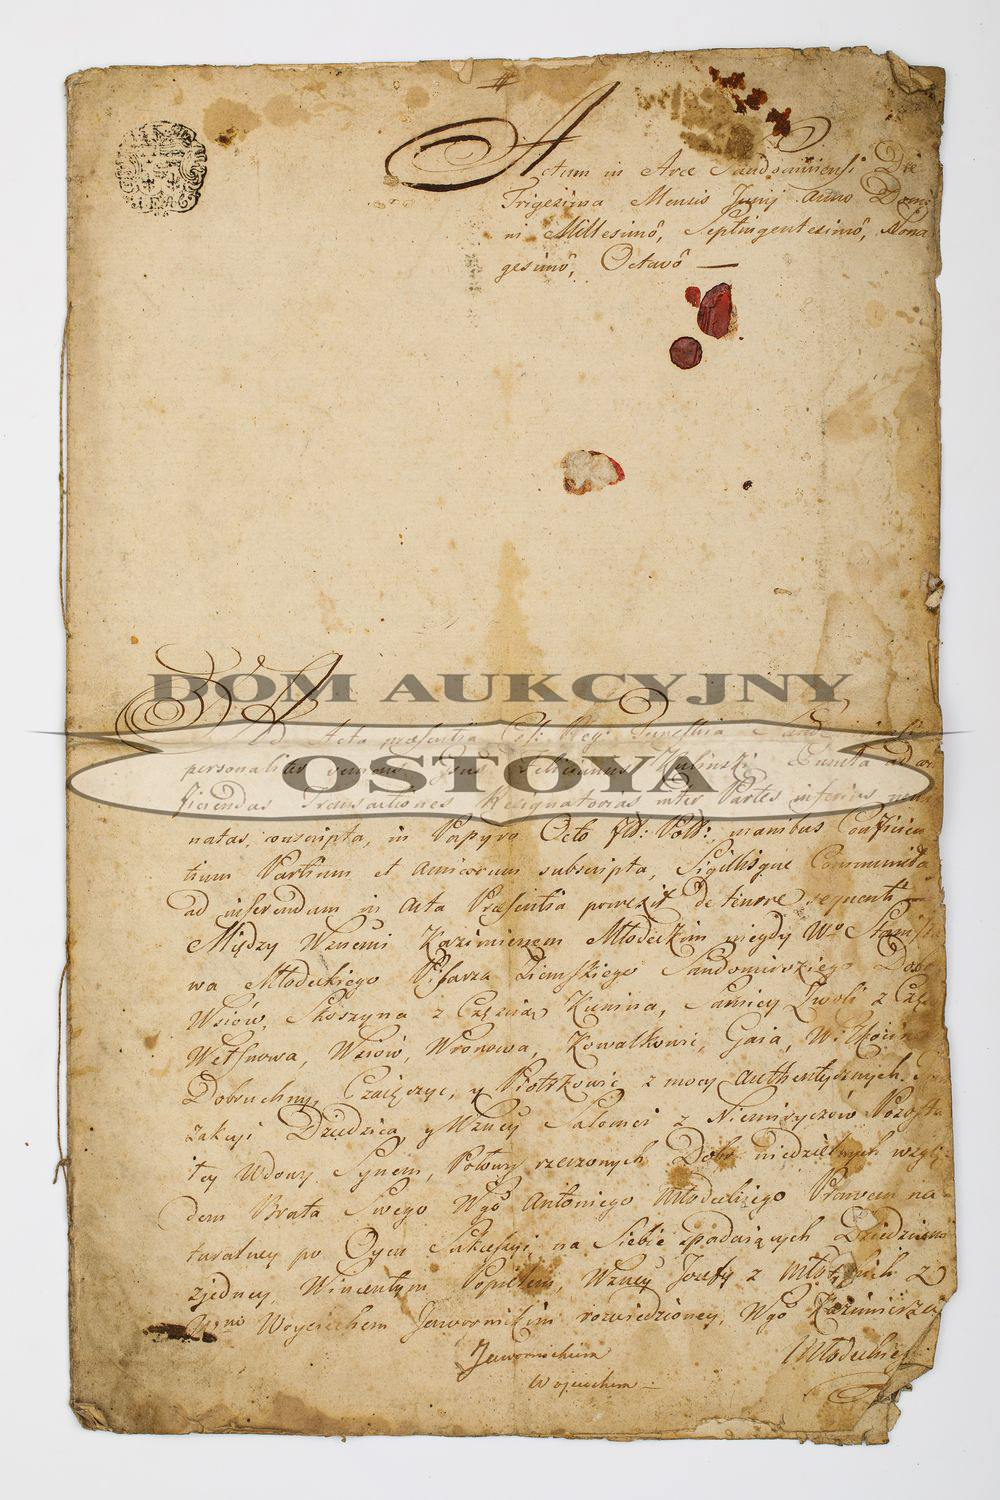 Actum in Arce Sandomiriensi Die
Trigesima Mensis Junij Anno Domi
ni Millesimô, Septingentesimô, Nona
gesimô, Octavô —
DOM AUKCYJNY
OSTOYA
Ad Acta præsentia Cæs: Reg:
personaliter veniens Felicianus Kuliński
ficiendas Transactiones Resignatorias inter Partes inferius
natas, conscripta, in Papyro Octo manibus Conficien
tium Partium et Amicorum subscripta, Sigillisque Communita
ad inferendum in Acta Præsentia porrexit de tenore sequenti —
Między Wznemi Kazimierzem Młodeckim niegdy Wo Stanisła
wa Młodeckiego Pisarza Ziemskiego Sandomirskiego Dobr
Wsiów, Skoszyna z Częścią Kunina,
Wronowa, Kowalkowic, Gaia,
Dobruchny, Czaięczyc, y Piotrkowic z mocy authentycznych
zakcyi Dziedzica, y Wzney Salomei z Niemiryczów Pozosta
łey Wdowy Synem, Połowy rzeczonych Dobr niedzielnych wzglę
dem Brata Swego Wgo Antoniego Młodeckiego Prawem na
turalney po Oycu Sukcessyi na Siebie spadaiących Dziedzicem
zjedney, Wincentym Popielem, Wzney Jozefy z Młodeckich z
Wznym Woyciechem Jawornickim rozwiedzioney, Wgo Kazimierza
Jawornickim Młodeckiey
Woyciechem —